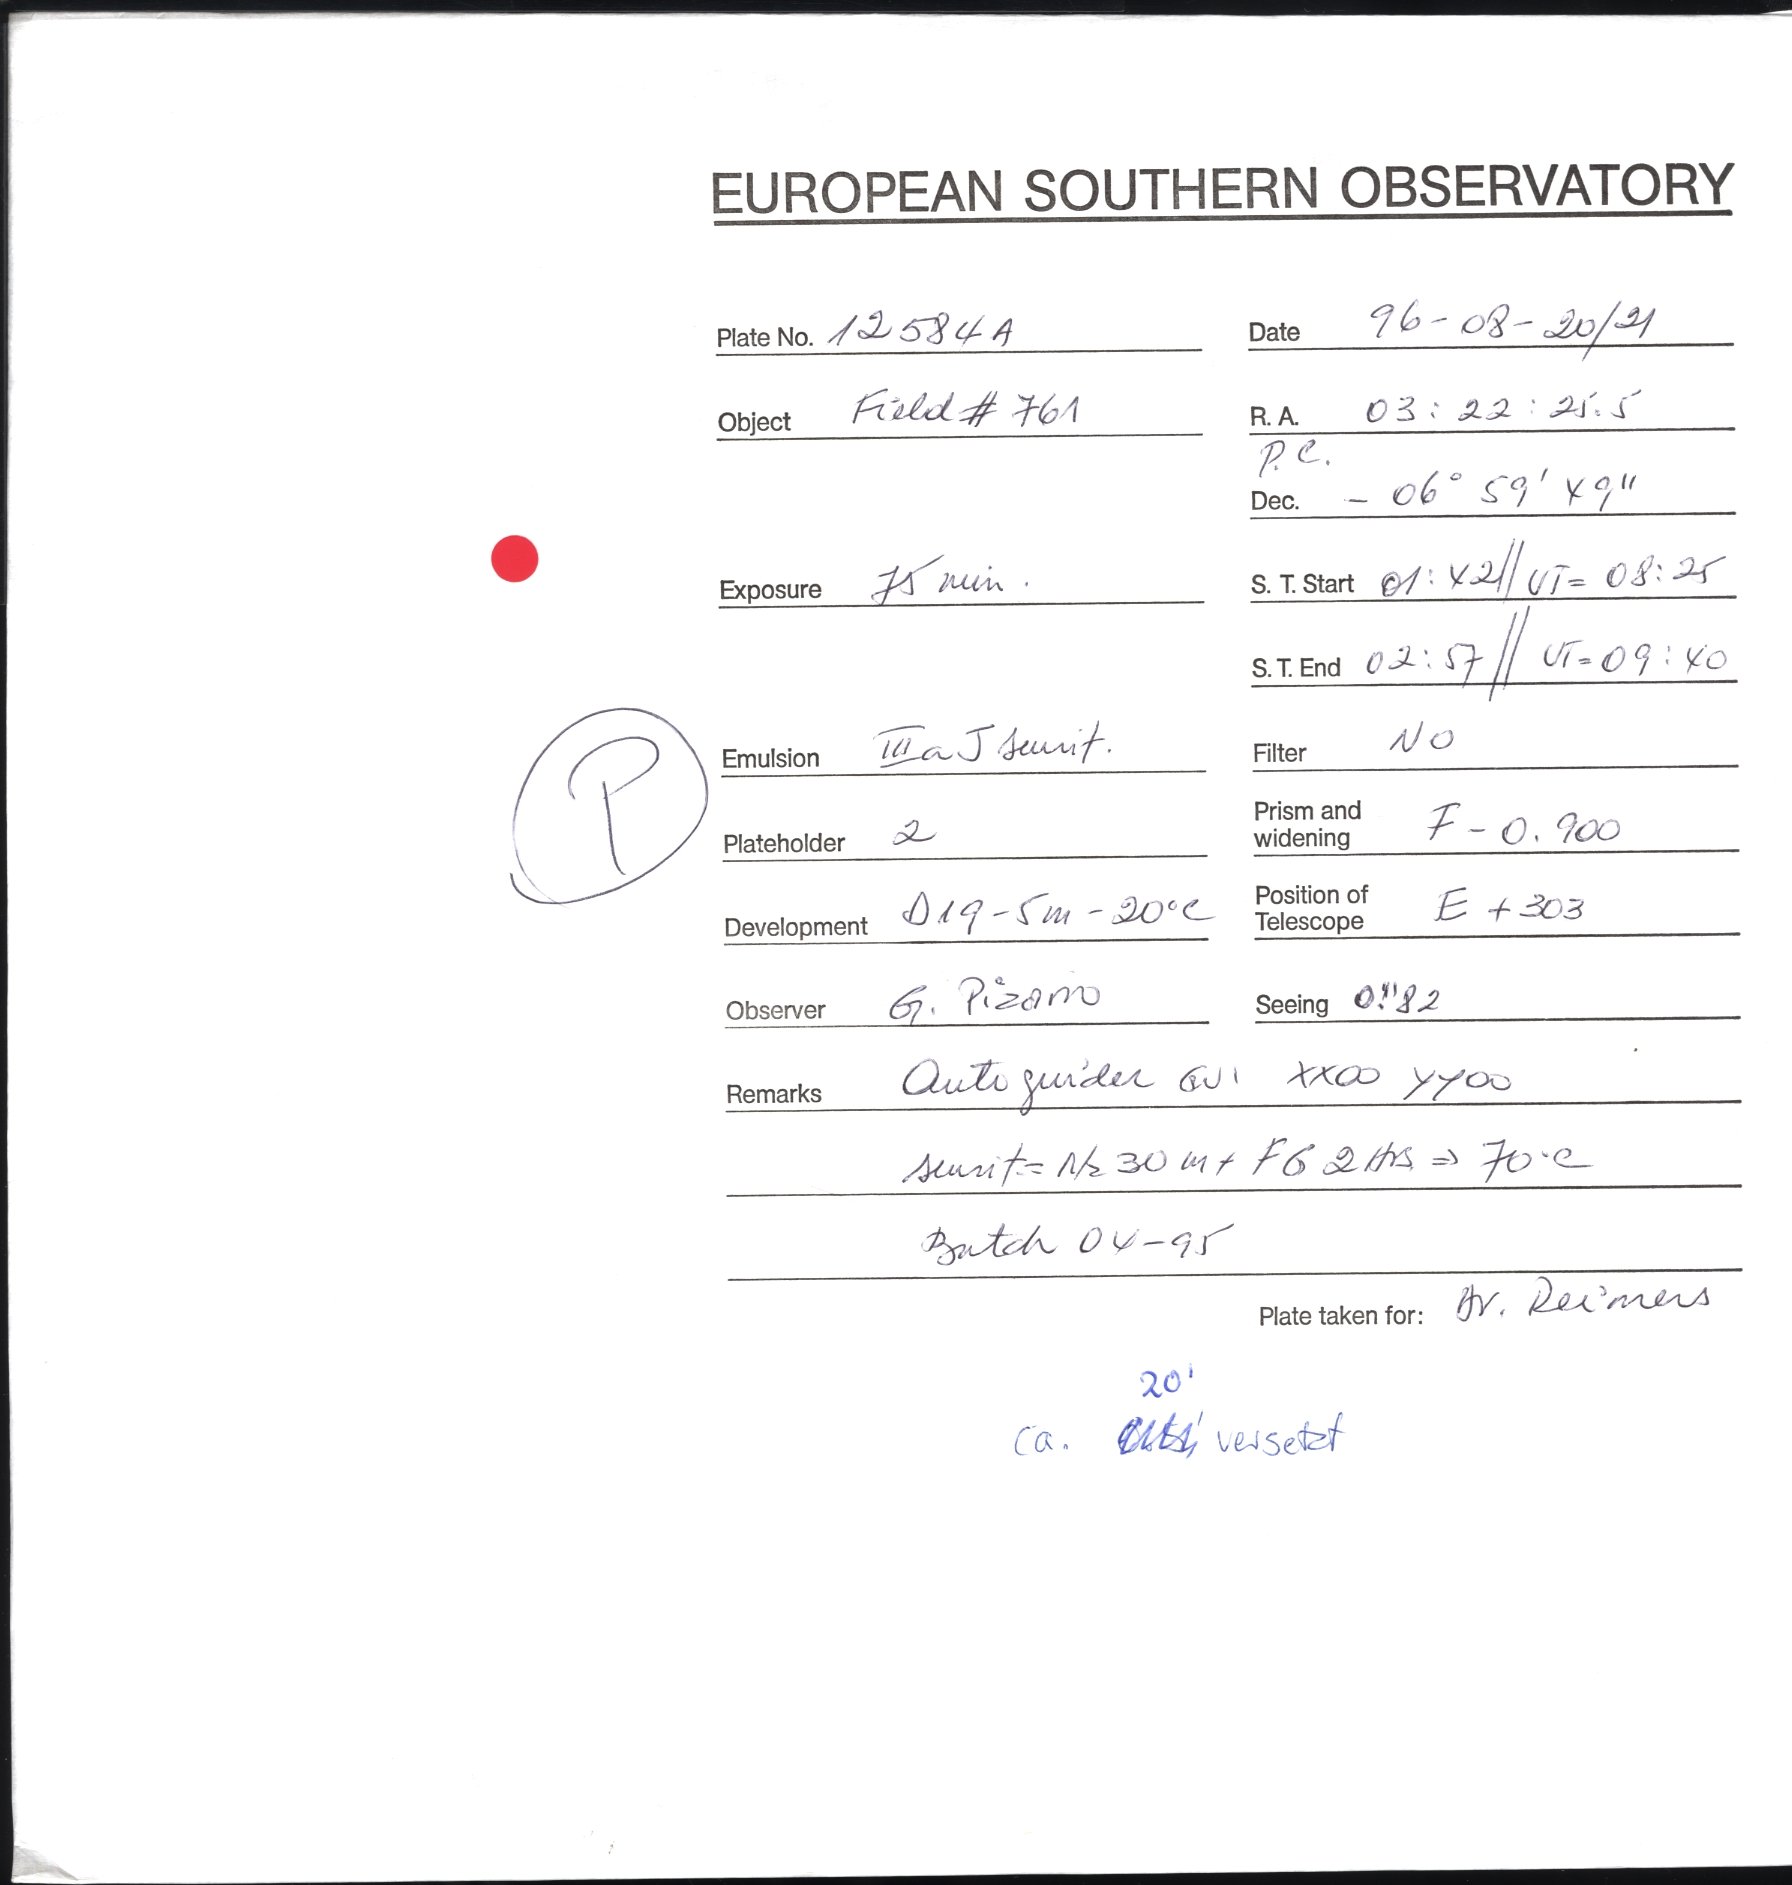 EUROPEAN SOUTHERN OBSERVATORY
Plate No. 12584A Date 96-08-20/21
Object Field # 761 R. A. 03 : 22 : 25.5
P. C.
Dec. - 06° 59' 49"
Exposure 75 min. S. T. Start 01:42 // UT= 08:25
S. T. End 02:57 // UT= 09:40
P
Emulsion III a J sensit. Filter NO
Plateholder 2 Prism and widening F - 0.900
Development D19 - 5m - 20°C Position of Telescope E + 303
Observer G. Pizarro Seeing 0."82
Remarks Autoguider XX00 YY00
sensit= N2 30 m + FG 2 Hrs => 70°C
Batch 04-95
Plate taken for: Dr. Reimers
20'
ca. versetzt